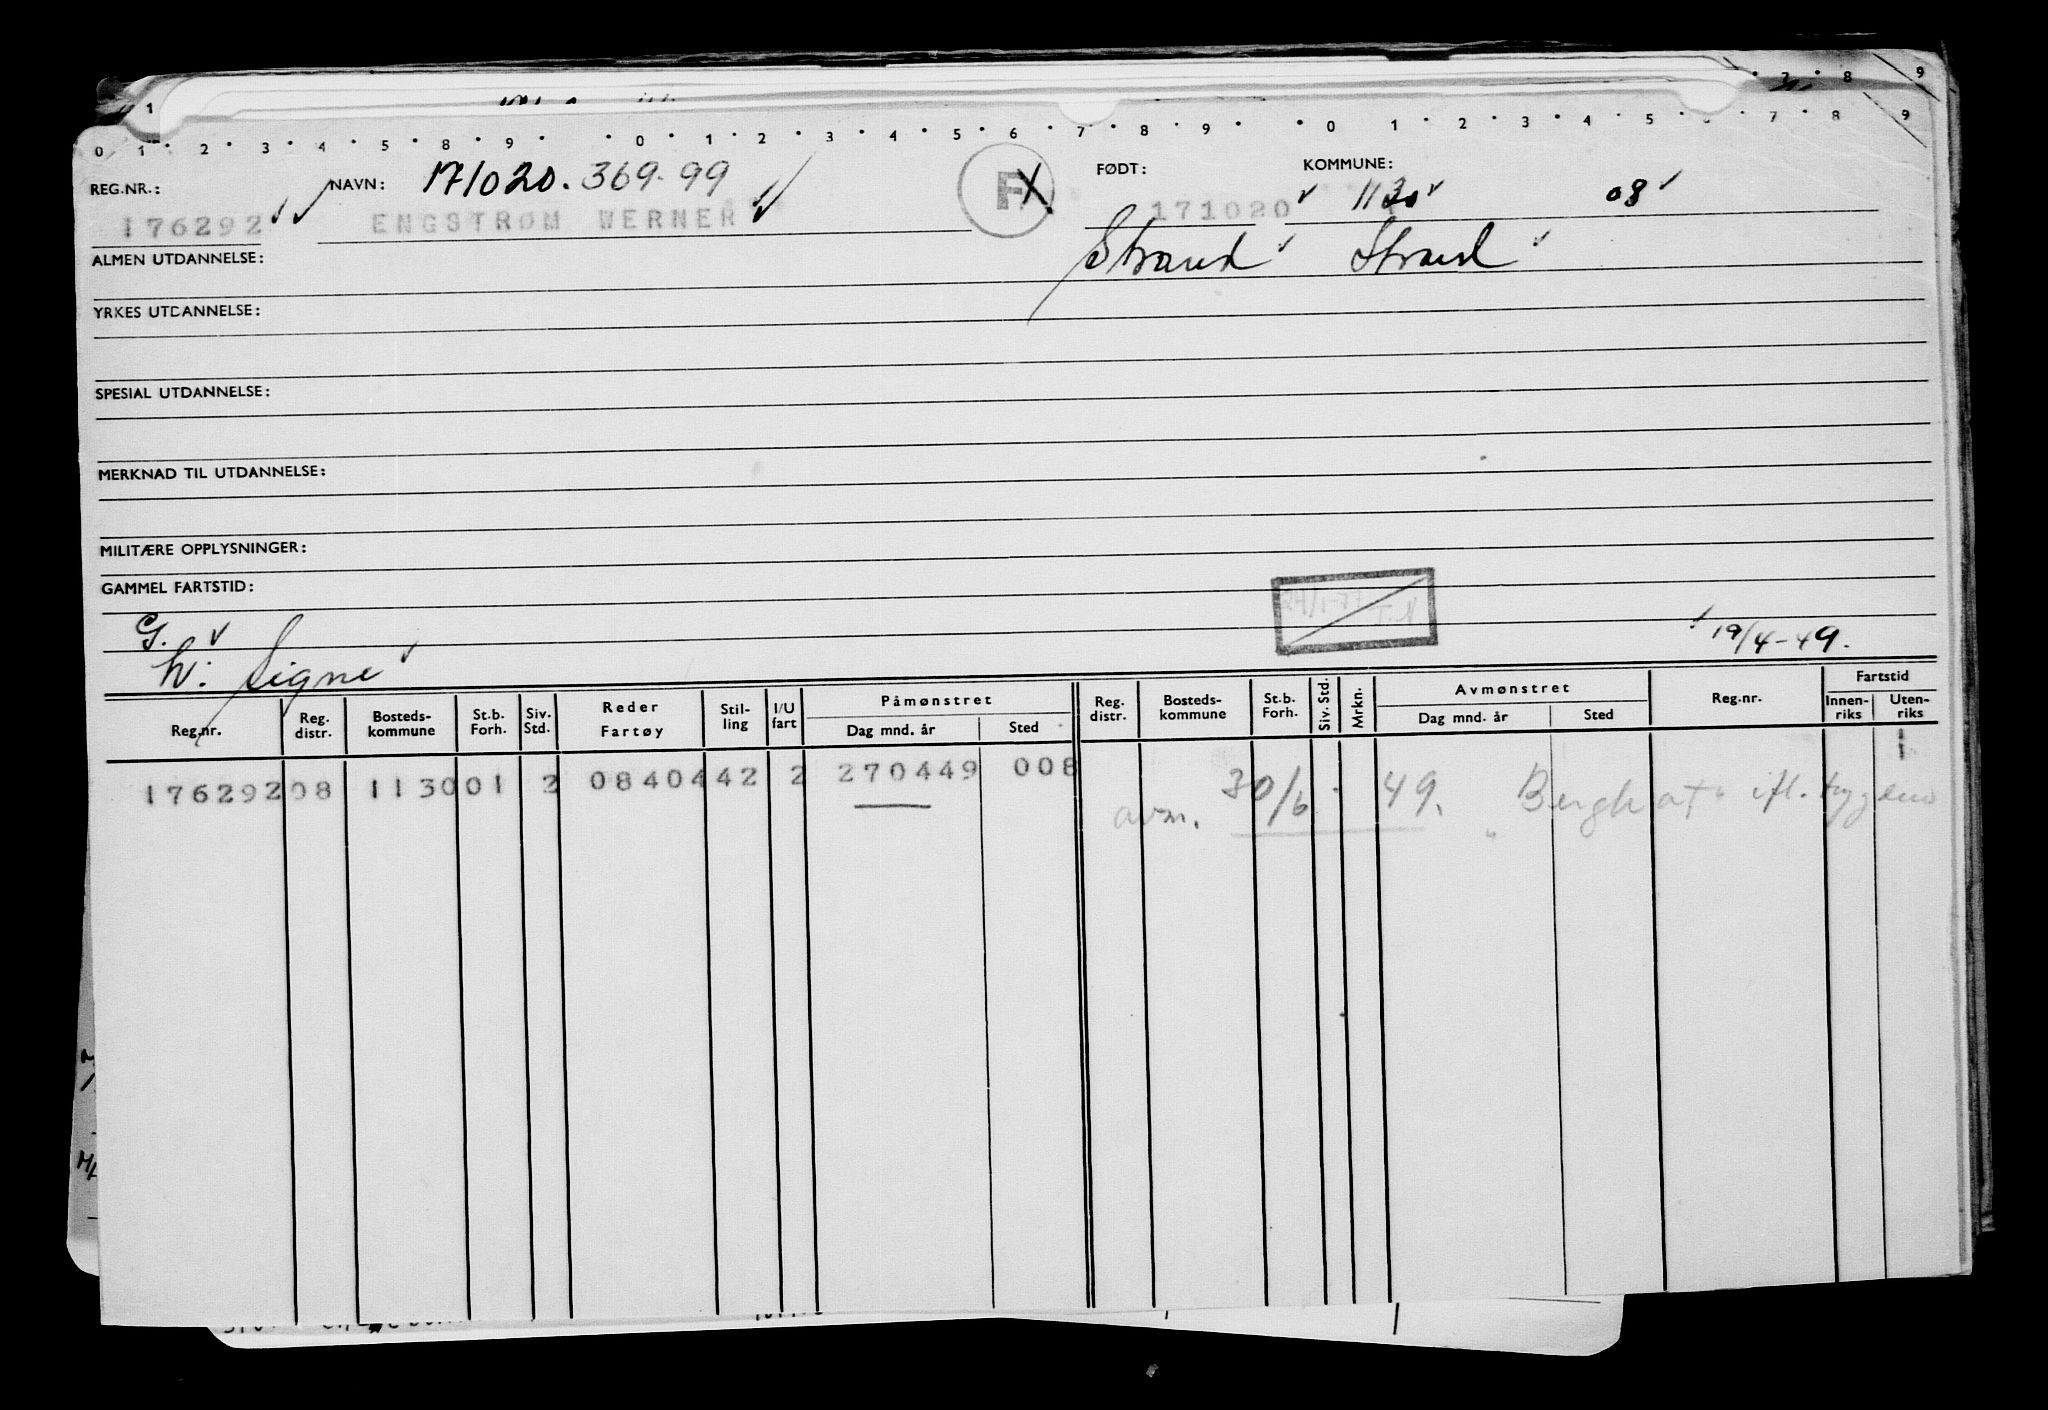 7 8 9
1
0 1 2 3 4 5 8 9 0 1 2 3 4 5 6 7 8 9 0 1 2 3 4 5 6 7 8 9
REG.NR.: NAVN: 171020. 369.99 F FØDT: KOMMUNE:
176292 ENGSTRØM WERNER 171020 1130 08
ALMEN UTDANNELSE: Strand Strand
YRKES UTDANNELSE:
SPESIAL UTDANNELSE:
MERKNAD TIL UTDANNELSE:
MILITÆRE OPPLYSNINGER:
GAMMEL FARTSTID:
G.
h: Signe 19/4-49.
Reg.nr. Reg. distr. Bosteds-kommune St.b. Forh. Siv. Std. Reder Fartøy Stil-ling I/U fart Påmønstret Dag mnd. år Sted Reg. distr. Bosteds-kommune St.b. Forh. Siv. Std. Mrkn. Avmønstret Dag mnd. år Sted Reg.nr. Fartstid Innen-riks Uten-riks
176292 08 1130 01 2 08404 42 2 270449 008 1
avm. 30/6 - 49. "Berghat" ifl. trygden